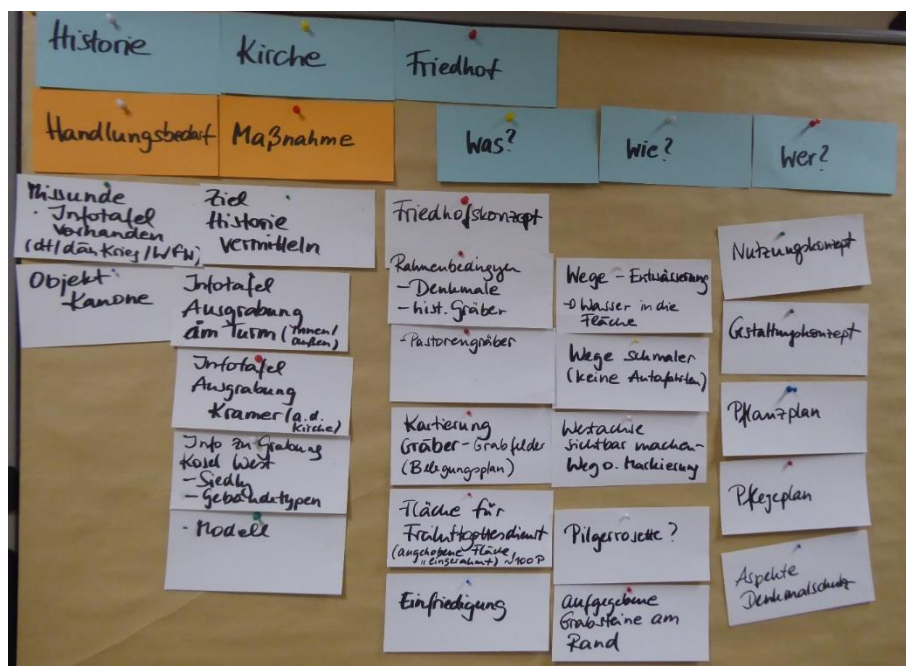 Historie
Kirche
Friedhof
Handlungsbedarf
Maßnahme
Was?
Wie?
Wer?
Missunde
· Infotafel
vorhanden
(dt/dän Krieg/
Objekt
Kanone
Ziel
Historie
vermitteln
Infotafel
Ausgrabung
am Turm (Innen/
außen)
Infotafel
Ausgrabung
Kramer (a.d.
Kirche)
Info zu Grabung
Kosel West
- Siedlg
- Gebäudetypen
- Modell
Friedhofskonzept
Rahmenbedingungen
- Denkmale
- hist. Gräber
- Pastorengräber
Kartierung
Gräber - Grabfelder
(Belegungsplan)
Fläche für
Freiluftgottesdienst
(angehobene Fläche,
"eingerahmt") ~100P
Einfriedigung
Wege - Entwässerung
Wasser in die
Fläche
Wege schmaler
(keine Autofahrten)
sichtbar machen-
Weg o. Markierung
Pilgerrosette?
aufgegebene
Grabsteine am
Rand
Nutzungskonzept
Gestaltungskonzept
Pflanzplan
Pflegeplan
Aspekte
Denkmalschutz